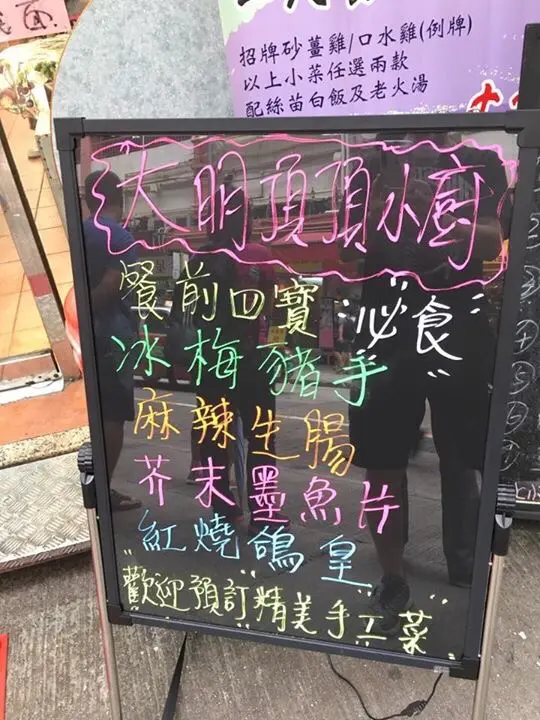 招牌砂薑雞/口水雞(例牌)
以上小菜任選兩款
配絲苗白飯及老火湯
大明頂頂小廚
餐前四寶 "泌食"
冰梅豬手
麻辣生腸
芥末墨魚片
紅燒鴿皇
"歡迎預訂" "精美手工菜"